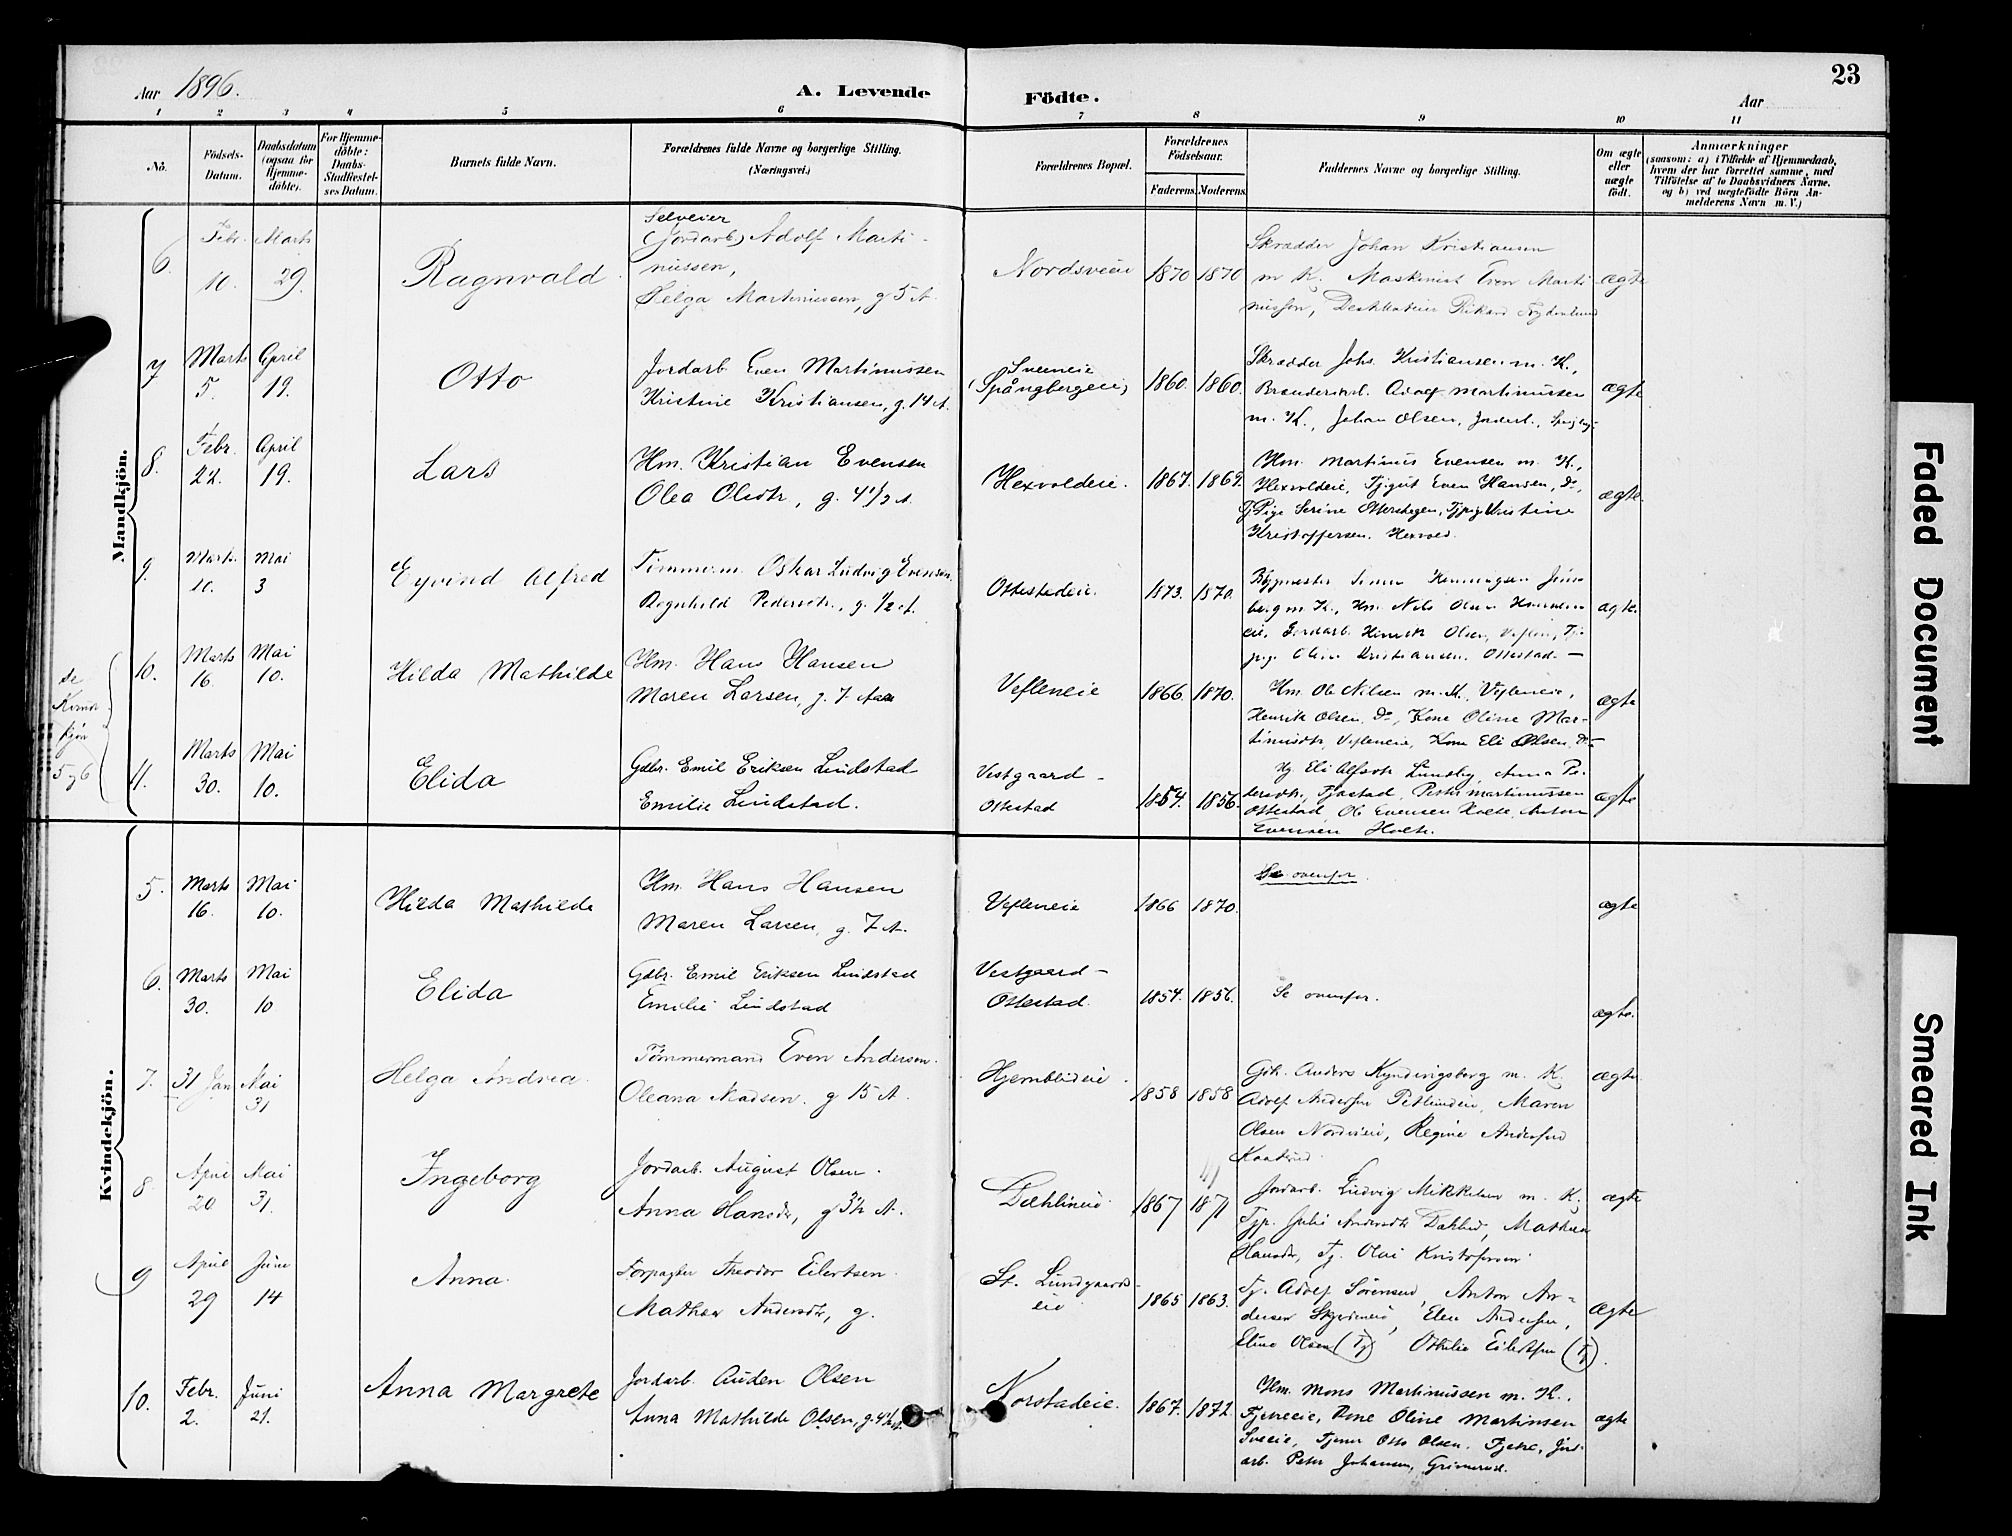 23
Aar 1896. A. Levende Födte. Aar
1 2 3 4 5 6 7 8 9 10 11
No.
Födsels-
Datum.
Daabsdatum
(ogsaa for
Hjemme-
döbte).
For Hjemme-
döbte:
Daabs-
Stadfæstel-
ses Datum.
Barnets fulde Navn.
Forældrenes fulde Navne og borgerlige Stilling.
(Næringsvei.)
Forældrenes Bopæl.
Forældrenes
Födselsaar.
Faderens. Moderens.
Faddernes Navne og borgerlige Stilling.
Om ægte
eller
uægte
födt.
Anmærkninger
(saasom: a) i Tilfælde af Hjemmedaab,
hvem der har forrettet samme, med
Tilföielse af to Daabsvidners Navne.
og b) ved uægtefödte Börn An-
melderens Navn m. V.)
Mandkjön.
6. Febr. 10. Marts 29. Ragnvald.
Selveier
(Jordarb) Adolf Marti-
nussen,
Helga Martinussen, g 5 A.
Nordsveie 1870 1870
Skrædder Johan Kristiansen
m K. Maskinist Even Marti
nussen, Rikard
ægte
7 Marts 5. April 19. Otto
Jordarb Even Martinussen
Kristine Kristiansen, g. 14 A.
Sveneie
(Spångbergeie) 1860. 1860.
Skrædder Johs. Kristiansen m. K.,
Adolf Martinussen
m. K., Johan Olsen, Jordarb.,
ægte
8. Febr. 22. April 19. Lars
Hm. Kristian Evensen
Olea Olsdtr, g. 4 1/2 A.
Hexvoldeie. 1867. 1869.
Hm. Martinus Evensen m. K.,
Hexvoldeie, Tjgut Even Hansen, do,
Pige Serine Tjpig Kristine
Kristoffersen. Hexvold.
ægte.
9. Marts. 10. Mai 3 Eyvind Alfred
Timmerm. Oskar Ludvig Evensen.
Ragnhild Pedersdtr., g. 1/2 A.
Ottestadeie. 1873. 1870.
m. K., Hm. Nils Olsen
eie, Jordarb. Henrik Olsen, Veflen, Tj.
pige Oline Kristiansen. Ottestad.—
ægte.
de
Kvind-
kjön
5 og 6
10. Marts 16. Mai 10. Hilda Mathilde
Hm. Hans Hansen
Maren Larsen, g. 7 Aar
Vefleneie 1866. 1870.
Hm. Ole Nilsen m. K. Vefleneie,
Henrik Olsen, do, Kone Oline Mar-
tinusdtr, Vefleneie, Kone Eli Olsen, do—
ægte
11. Marts 30. Mai 10. Elida
Gdbr. Emil Eriksen Lindstad
Emilie Lindstad.
Vestgaard-
Ottestad 1854. 1856.
Eli Alfsdtr Anna Pe-
dersdtr, Peter Martinussen
Ottestad, Ole Evensen Holte, Anton
Evensen Holte.
ægte
Kvindekjön.
5. Marts 16. Mai 10. Hilda Mathilde
Hm. Hans Hansen
Maren Larsen, g. 7 A.
Vefleneie 1866 1870.
Se ovenfor.
ægte
6. Marts 30. Mai 10 Elida
Gdbr. Emil Eriksen Lindstad
Emilie Lindstad
Vestgaard-
Ottestad. 1854. 1856.
Se ovenfor.
ægte.
7. 31 Jan Mai 31 Helga Andrea.
Tömmermand Even Andersen.
Oleana Madsen. g 15 A.
Hjemblideie. 1858 1858
Gdb. Anders Kyndingsberg m. K
Adolf Andersen Maren
Olsen Regine Andersen
ægte.
8. April 20 Mai 31. Ingeborg
Jordarb. August Olsen.
Anna Hansdr, g 3 1/2 A.
Dæhlineie 1867 1871
Jordarb. Ludvig Mikkelsen m. K.
Tjp. Julie Andersdtr Dæhlid, Mathea
Hansdtr, Tj. Olai Kristofersen
ægte
9 April 29 Juni 14 Anna.
Forpagter Theodor Eilertsen.
Mathea Andersdtr, g.
St. Lundgaards-
eie 1865 1863.
Tj. Adolf Sörensen, Anton An-
dersen Elen Andersen,
Eline Olsen (Tj) Othilie Eilertsen (Tj).
ægte
10. Febr. 2. Juni 21. Anna Margrete
Jordarb. Auden Olsen
Anna Mathilde Olsen, g. 4 1/2 A.
Norstadeie. 1867. 1872.
Hm. Mons Martinussen m. K.,
Kone Oline Martinsen
Sveeie, Tjener Otto Olsen. Jord-
arb. Peter Johansen, Grimerud.
ægte
Faded Document
Smeared Ink